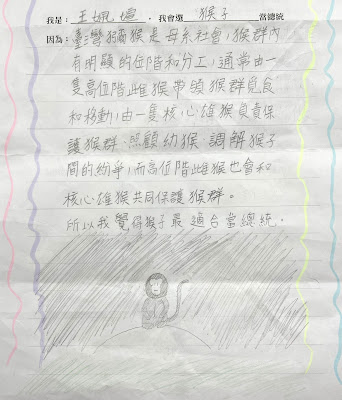 我是：王姵壹，我會選 猴子 當總統
因為：臺灣獼猴是母系社會，猴群內
有明顯的位階和分工，通常由一
隻高位階雌猴帶領猴群覓食
和移動，由一隻核心雄猴負責保
護猴群、照顧幼猴、調解猴子
間的紛爭，而高位階雌猴也會和
核心雄猴共同保護猴群。
所以我覺得猴子最適合當總統。